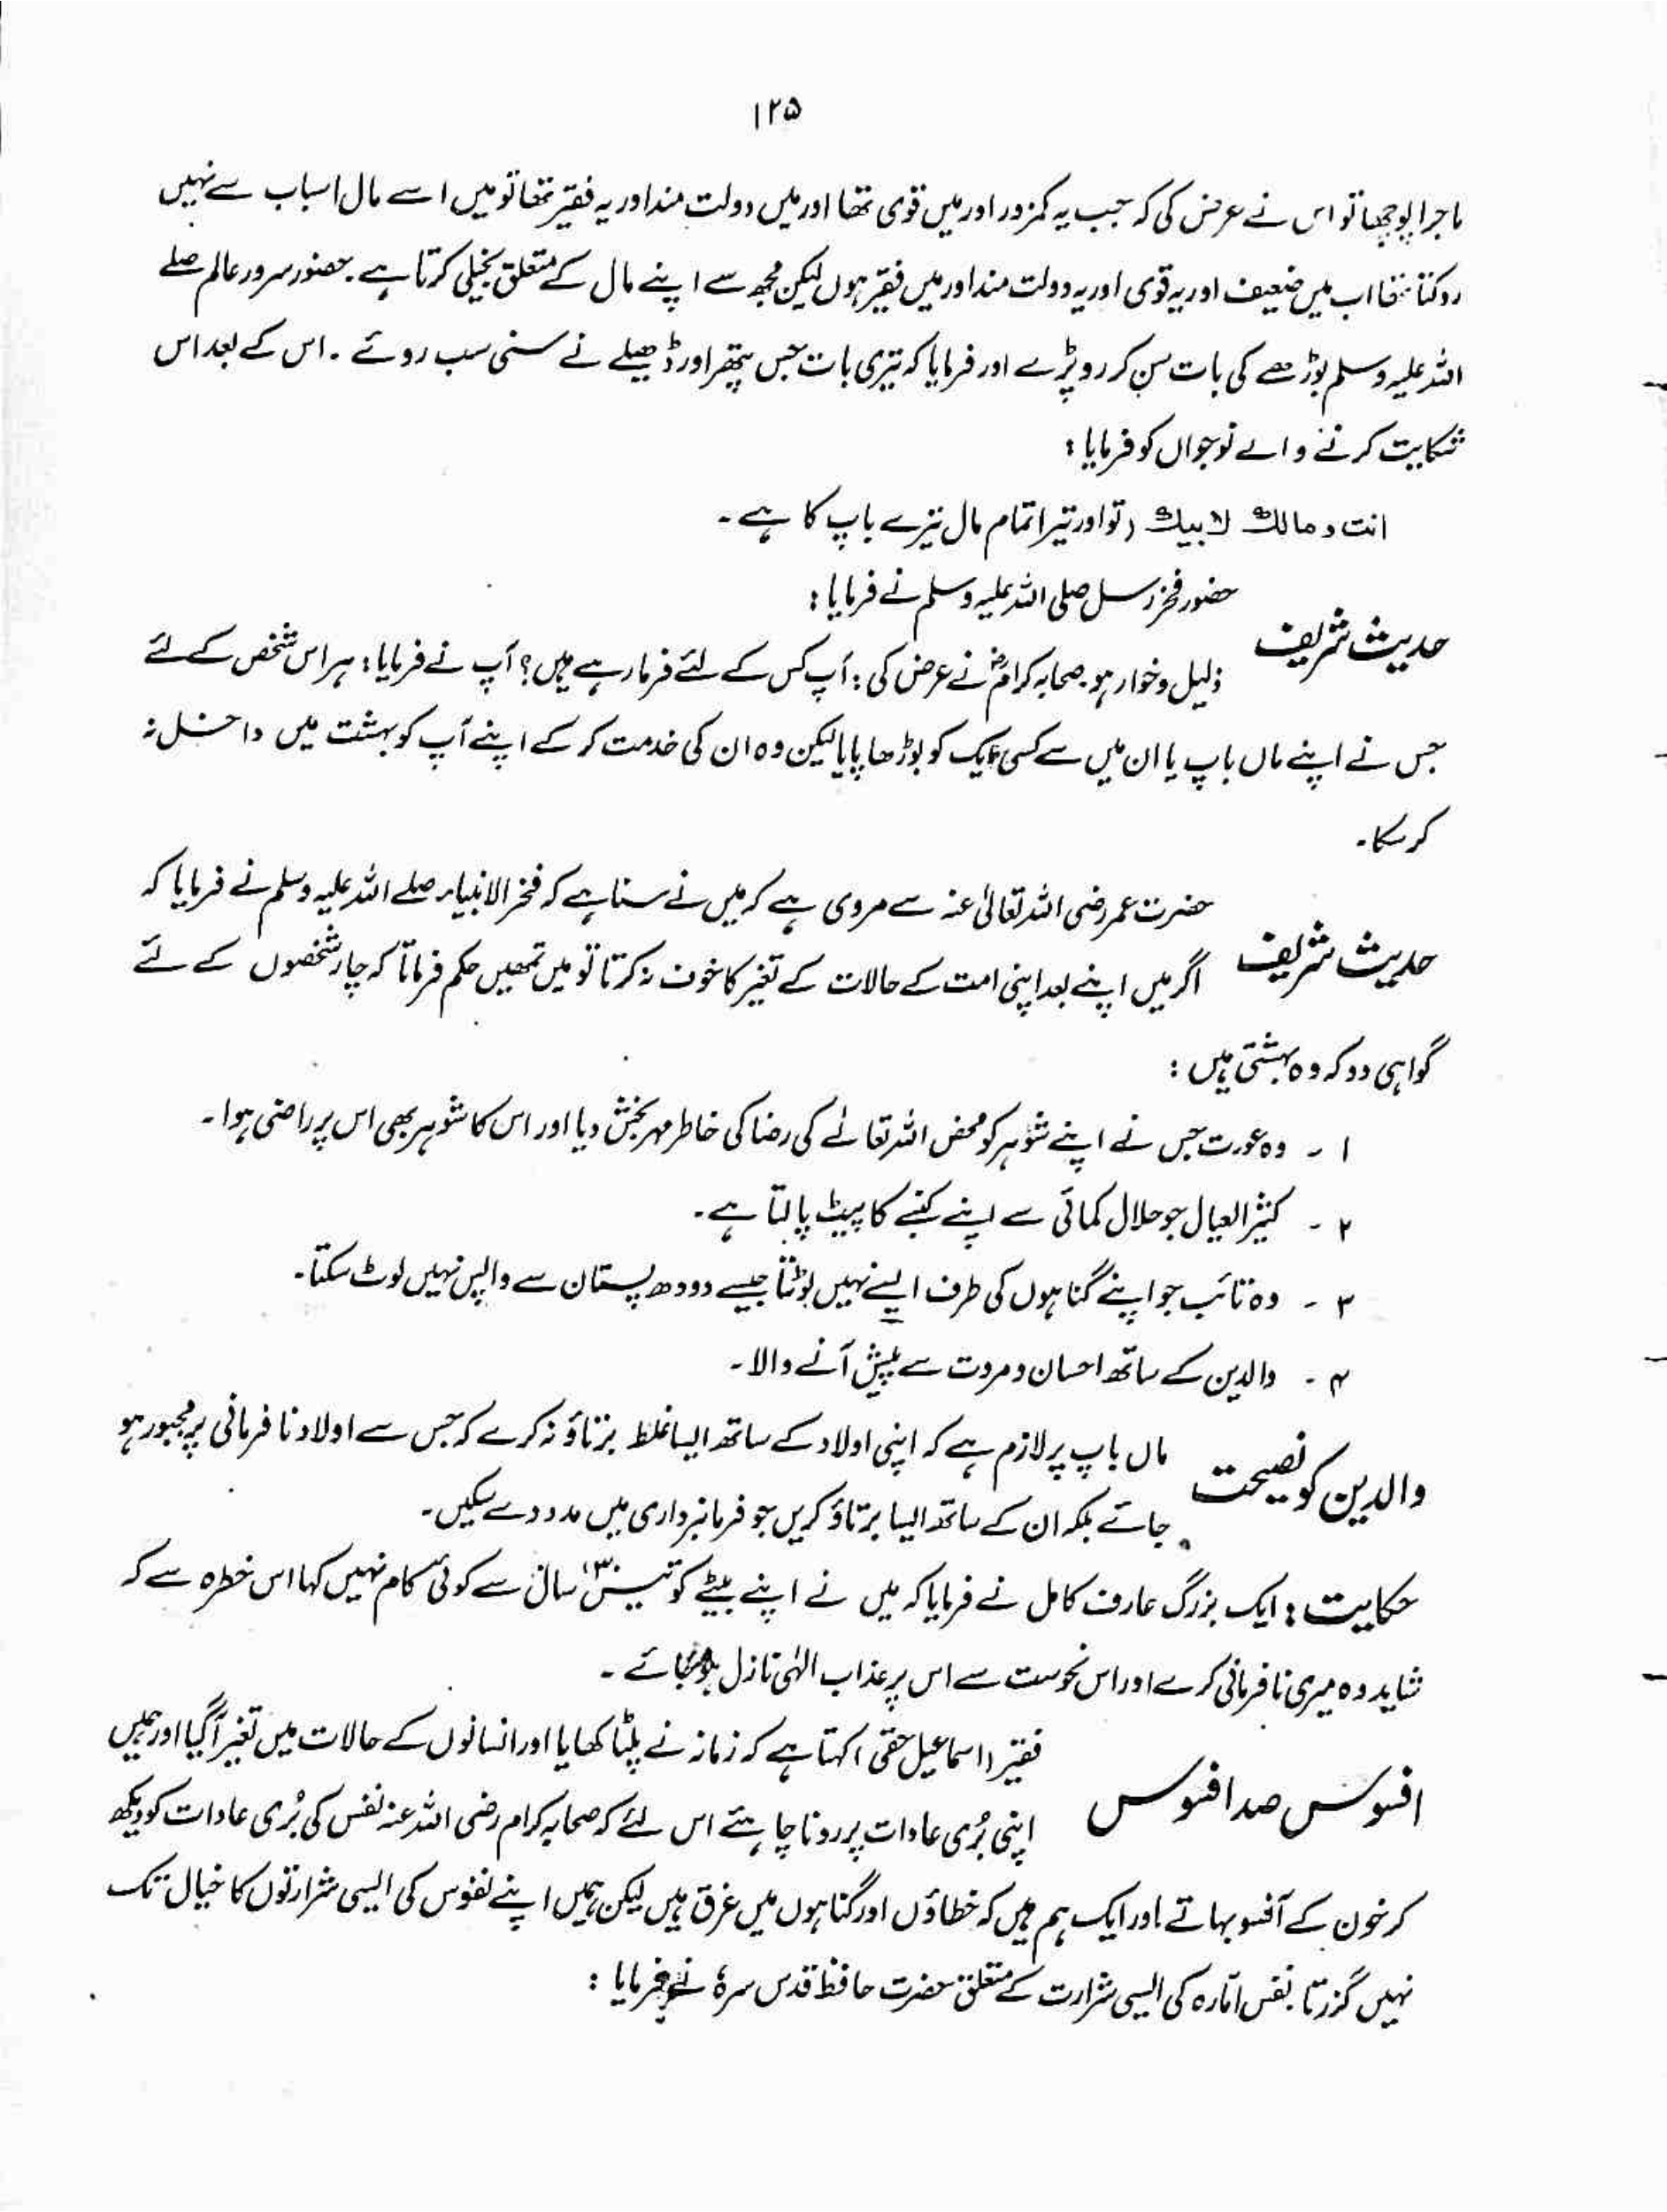 ۱۲۵
ماجرا پوچھا تو اس نے عرض کی کہ جب یہ کمزور اور میں قوی تھا اور میں دولت مند اور یہ فقیر تھا تو میں اسے مال اسباب سے نہیں
روکتا تھا اب میں ضعیف اور یہ قوی اور یہ دولت مند اور میں فقیر ہوں لیکن مجھ سے اپنے مال کے متعلق بخیلی کرتا ہے۔ حضور سرور عالم صلے
اللہ علیہ وسلم بوڑھے کی بات سن کر رو پڑے اور فرمایا کہ تیری بات جس پتھر اور ڈھیلے نے سنی سب روئے ۔ اس کے بعد اس
شکایت کرنے والے نوجوان کو فرمایا :
انت و مالك لابيك (تو اور تیرا تمام مال تیرے باپ کا ہے ۔
حضور فخر رسل صلی اللہ علیہ وسلم نے فرمایا :
حدیث شریف
ذلیل و خوار ہو۔ صحابہ کرامؓ نے عرض کی : آپ کس کے لئے فرما رہے ہیں؟ آپ نے فرمایا : ہر اس شخص کے لئے
جس نے اپنے ماں باپ یا ان میں سے کسی ایک کو بوڑھا پایا لیکن وہ ان کی خدمت کر کے اپنے آپ کو بہشت میں داخل نہ
کر سکا۔
حضرت عمر رضی اللہ تعالیٰ عنہ سے مروی ہے کہ میں نے سنا ہے کہ فخر الانبیاء صلے اللہ علیہ وسلم نے فرمایا کہ
حدیث شریف
اگر میں اپنے بعد اپنی امت کے حالات کے تغیر کا خوف نہ کرتا تو میں تمھیں حکم فرماتا کہ چار شخصوں کے لئے
گواہی دو کہ وہ بہشتی ہیں :
۱ ۔ وہ عورت جس نے اپنے شوہر کو محض اللہ تعالےٰ کی رضا کی خاطر مہر بخش دیا اور اس کا شوہر بھی اس پر راضی ہوا ۔
۲ ۔ کثیر العیال جو حلال کمائی سے اپنے کنبے کا پیٹ پالتا ہے۔
۳ ۔ وہ تائب جو اپنے گناہوں کی طرف ایسے نہیں لوٹتا جیسے دودھ پستان سے واپس نہیں لوٹ سکتا۔
۴ ۔ والدین کے ساتھ احسان و مروت سے پیش آنے والا ۔
ماں باپ پر لازم ہے کہ اپنی اولاد کے ساتھ ایسا غلط برتاؤ نہ کرے کہ جس سے اولاد نافرمانی پر مجبور ہو
والدین کو نصیحت
جائے بلکہ ان کے ساتھ ایسا برتاؤ کریں جو فرمانبرداری میں مدد دے سکیں۔
حکایت : ایک بزرگ عارف کامل نے فرمایا کہ میں نے اپنے بیٹے کو تیس سال سے کوئی کام نہیں کہا اس خطرہ سے کہ
شاید وہ میری نافرمانی کرے اور اس نحوست سے اس پر عذاب الٰہی نازل ہو جائے ۔
فقیر (اسماعیل حقی) کہتا ہے کہ زمانہ نے پلٹا کھایا اور انسانوں کے حالات میں تغیر آگیا اور ہمیں
افسوس صد افسوس
اپنی بُری عادات پر رونا چاہئے اس لئے کہ صحابہ کرام رضی اللہ عنہ نفس کی بُری عادات کو دیکھ
کر خون کے آنسو بہاتے اور ایک ہم ہیں کہ خطاؤں اور گناہوں میں غرق ہیں لیکن ہمیں اپنے نفوس کی ایسی شرارتوں کا خیال تک
نہیں گزرتا۔ نفس امّارہ کی ایسی شرارت کے متعلق حضرت حافظ قدس سرہٗ نے فرمایا :